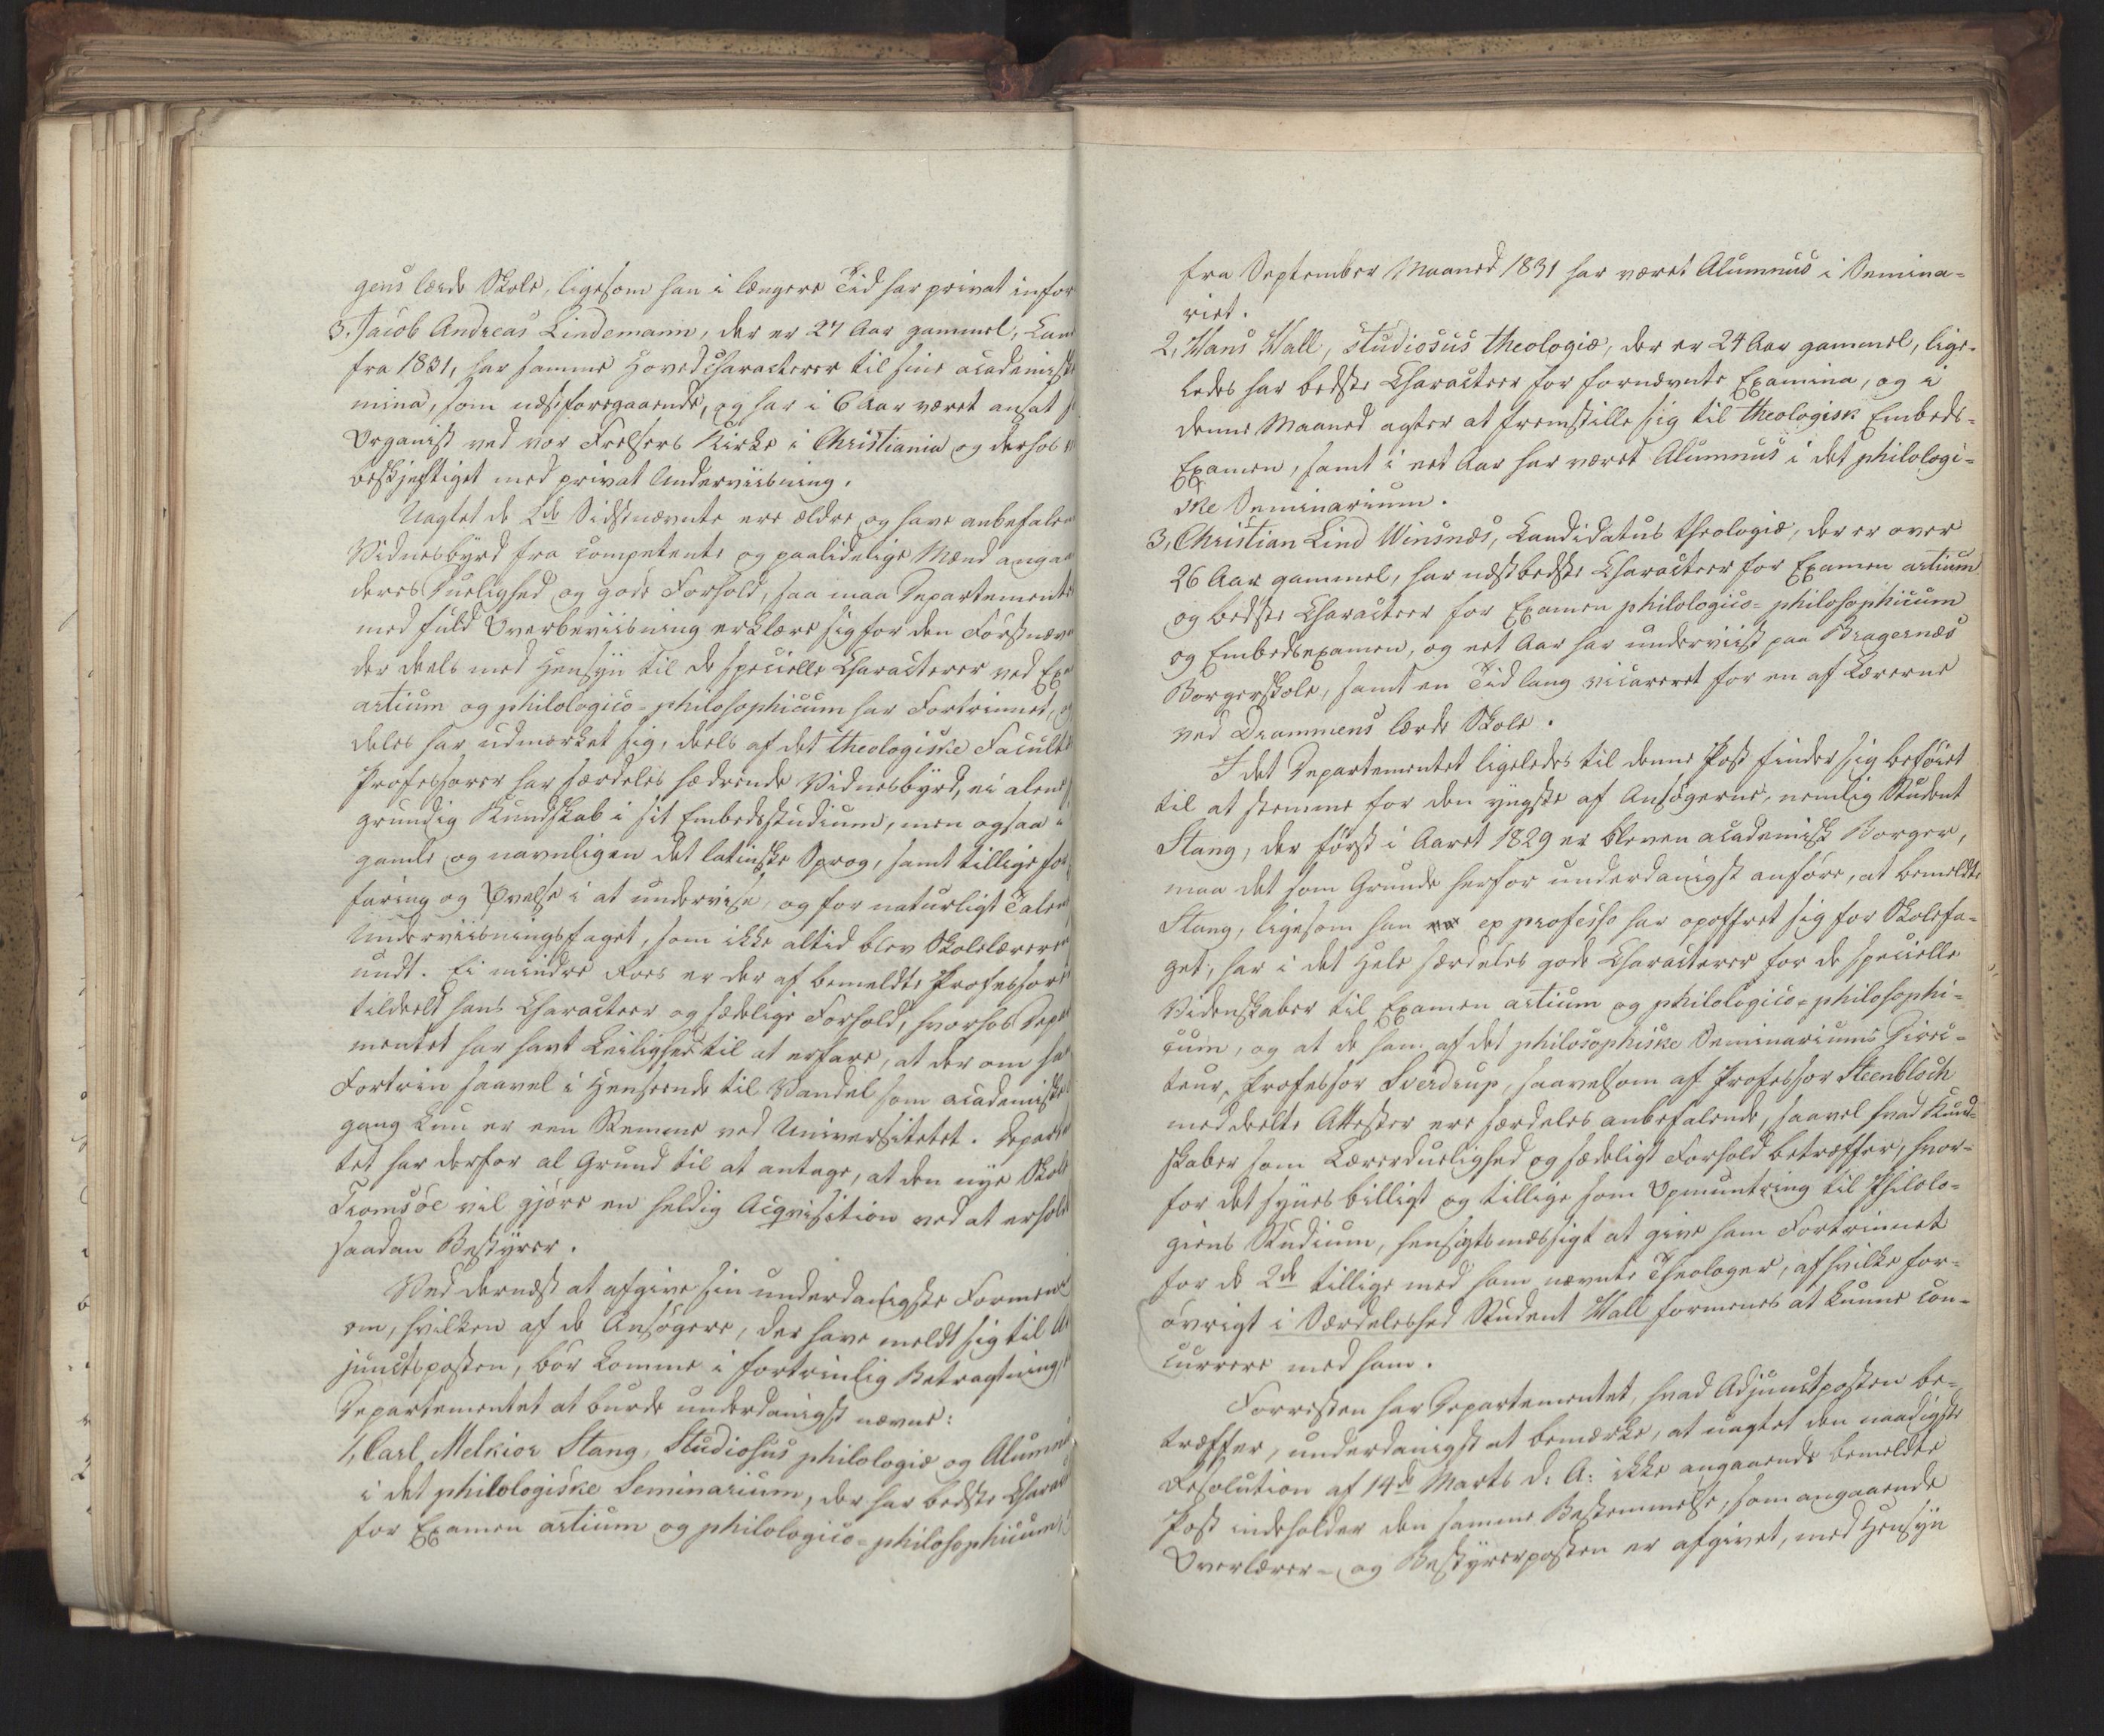 gens lærde Skole, ligesom han i længere Tid har privat infor
3. Jacob Andreas Lindemann, der er 27 Aar gammel, Can
fra 1831, har samme Hovedcharacterer til sine academiske
mina, som næstforegaaende, og har i 6 Aar været ansat s
Organist ved vor Frelsers Kirke i Christiania og derhos
beskjeftiget med privat Underviisning.
Uagtet de 2de Sidstnævnte ere ældre og have anbefalen
Vidnesbyrd fra competente og paalidelige Mænd angaa
deres Duelighed og gode Forhold, saa maa Departemente
med fuld Overbeviisning erklære sig for den Førstnævn
der deels med Hensyn til de specielle Characterer ved Exa
artium og philologico-philosophicum har Fortrinnet, og
deles har udmærket sig, deels af det theologiske Facult
Professorer har særdeles hædrende Vidnesbyrd, ei alene
grundig Kundskab i sit Embedsstudium, men ogsaa i
gamle og navnligen det latinske Sprog, samt tillige for
faring og Øvelse i at undervise, og for naturligt Talen
Underviisningsfaget, som ikke altid blev Skolelærere
undt. Ei mindre Roes er der af bemeldte Professore
tildeelt hans Characteer og sædelige Forhold, hvorhos Depa
mentet har havt Leilighed til at erfare, at der om ha
Fortrin saavel i Henseende til Vandel som academiske
gang kun er een Stemme ved Universitetet. Departe
tet har derfor al Grund til at antage, at den nye Skole
Tromsøe vil gjøre en heldig Acqvisition ved at erhold
saadan Bestyrer.
Ved dernæst at afgive sin underdanigste Formeni
om, hvilken af de Ansøgere, der have meldt sig til A
junctsposten, bør komme i fortrinlig Betragtning,
Departementet at burde underdanigst nævne:
1, Carl Melkior Stang, Studiosus philologiæ og Alumn
i det philologiske Seminarium, der har bedste Charac
for Examen artium og philologico-philosophicum,
fra September Maaned 1831 har været Alumnus i Semina-
riet.
2, Hans Hall, studiosus theologiæ, der er 24 Aar gammel, lige-
ledes har bedste Characteer for fornævnte Examina, og i
denne Maaned agter at fremstille sig til theologisk Embeds-
Examen, samt i eet Aar har været Alumnus i det philologi-
ske Seminarium.
3, Christian Lind Winsnæs, Candidatus theologiæ, der er over
26 Aar gammel, har næstbedste Characteer for Examen artium
og bedste Characteer for Examen philologico-philosophicum
og Embedsexamen, og eet Aar har underviist paa Bragernæs
Borgerskole, samt en Tid lang vicareret for en af Lærerne
ved Drammens lærde Skole.
I det Departementet ligeledes til denne Post finder sig beføiet
til at stemme for den yngste af Ansøgerne, nemlig Student
Stang, der først i Aaret 1829 er bleven academisk Borger,
maa det som Grunde herfor underdanigst anføre, at bemeldte
Stang, ligesom han ex professo har opoffret sig for Skolefa-
get, har i det Hele særdeles gode Characterer for de specielle
Videnskaber til Examen artium og philologico-philosophi-
cum, og at de ham af det philosophiske Seminariums Direc-
teur, Professor Sverdrup, saavelsom af Professor Steenbloch
meddeelte Attester ere særdeles anbefalende, saavel hvad Kund-
skaber som Lærerduelighed og sædeligt Forhold betræffer, hvor-
for det synes billigt og tillige som Opmuntring til Philolo-
giens Studium, hensigtsmæssigt at give ham Fortrinnet
for de 2de tillige med ham nævnte Theologer, af hvilke for-
øvrigt i Særdeleshed Student Hall formenes at kunne con-
currere med ham.
Forresten har Departementet, hvad Adjunctposten be-
træffer, underdanigst at bemærke, at uagtet den naadigste
Resolution af 14de Marts d: A: ikke angaaende bemeldte
Post indeholder den samme Bestemmelse, som angaaende
Overlærer- og Bestyrerposten er afgivet, med Hensyn